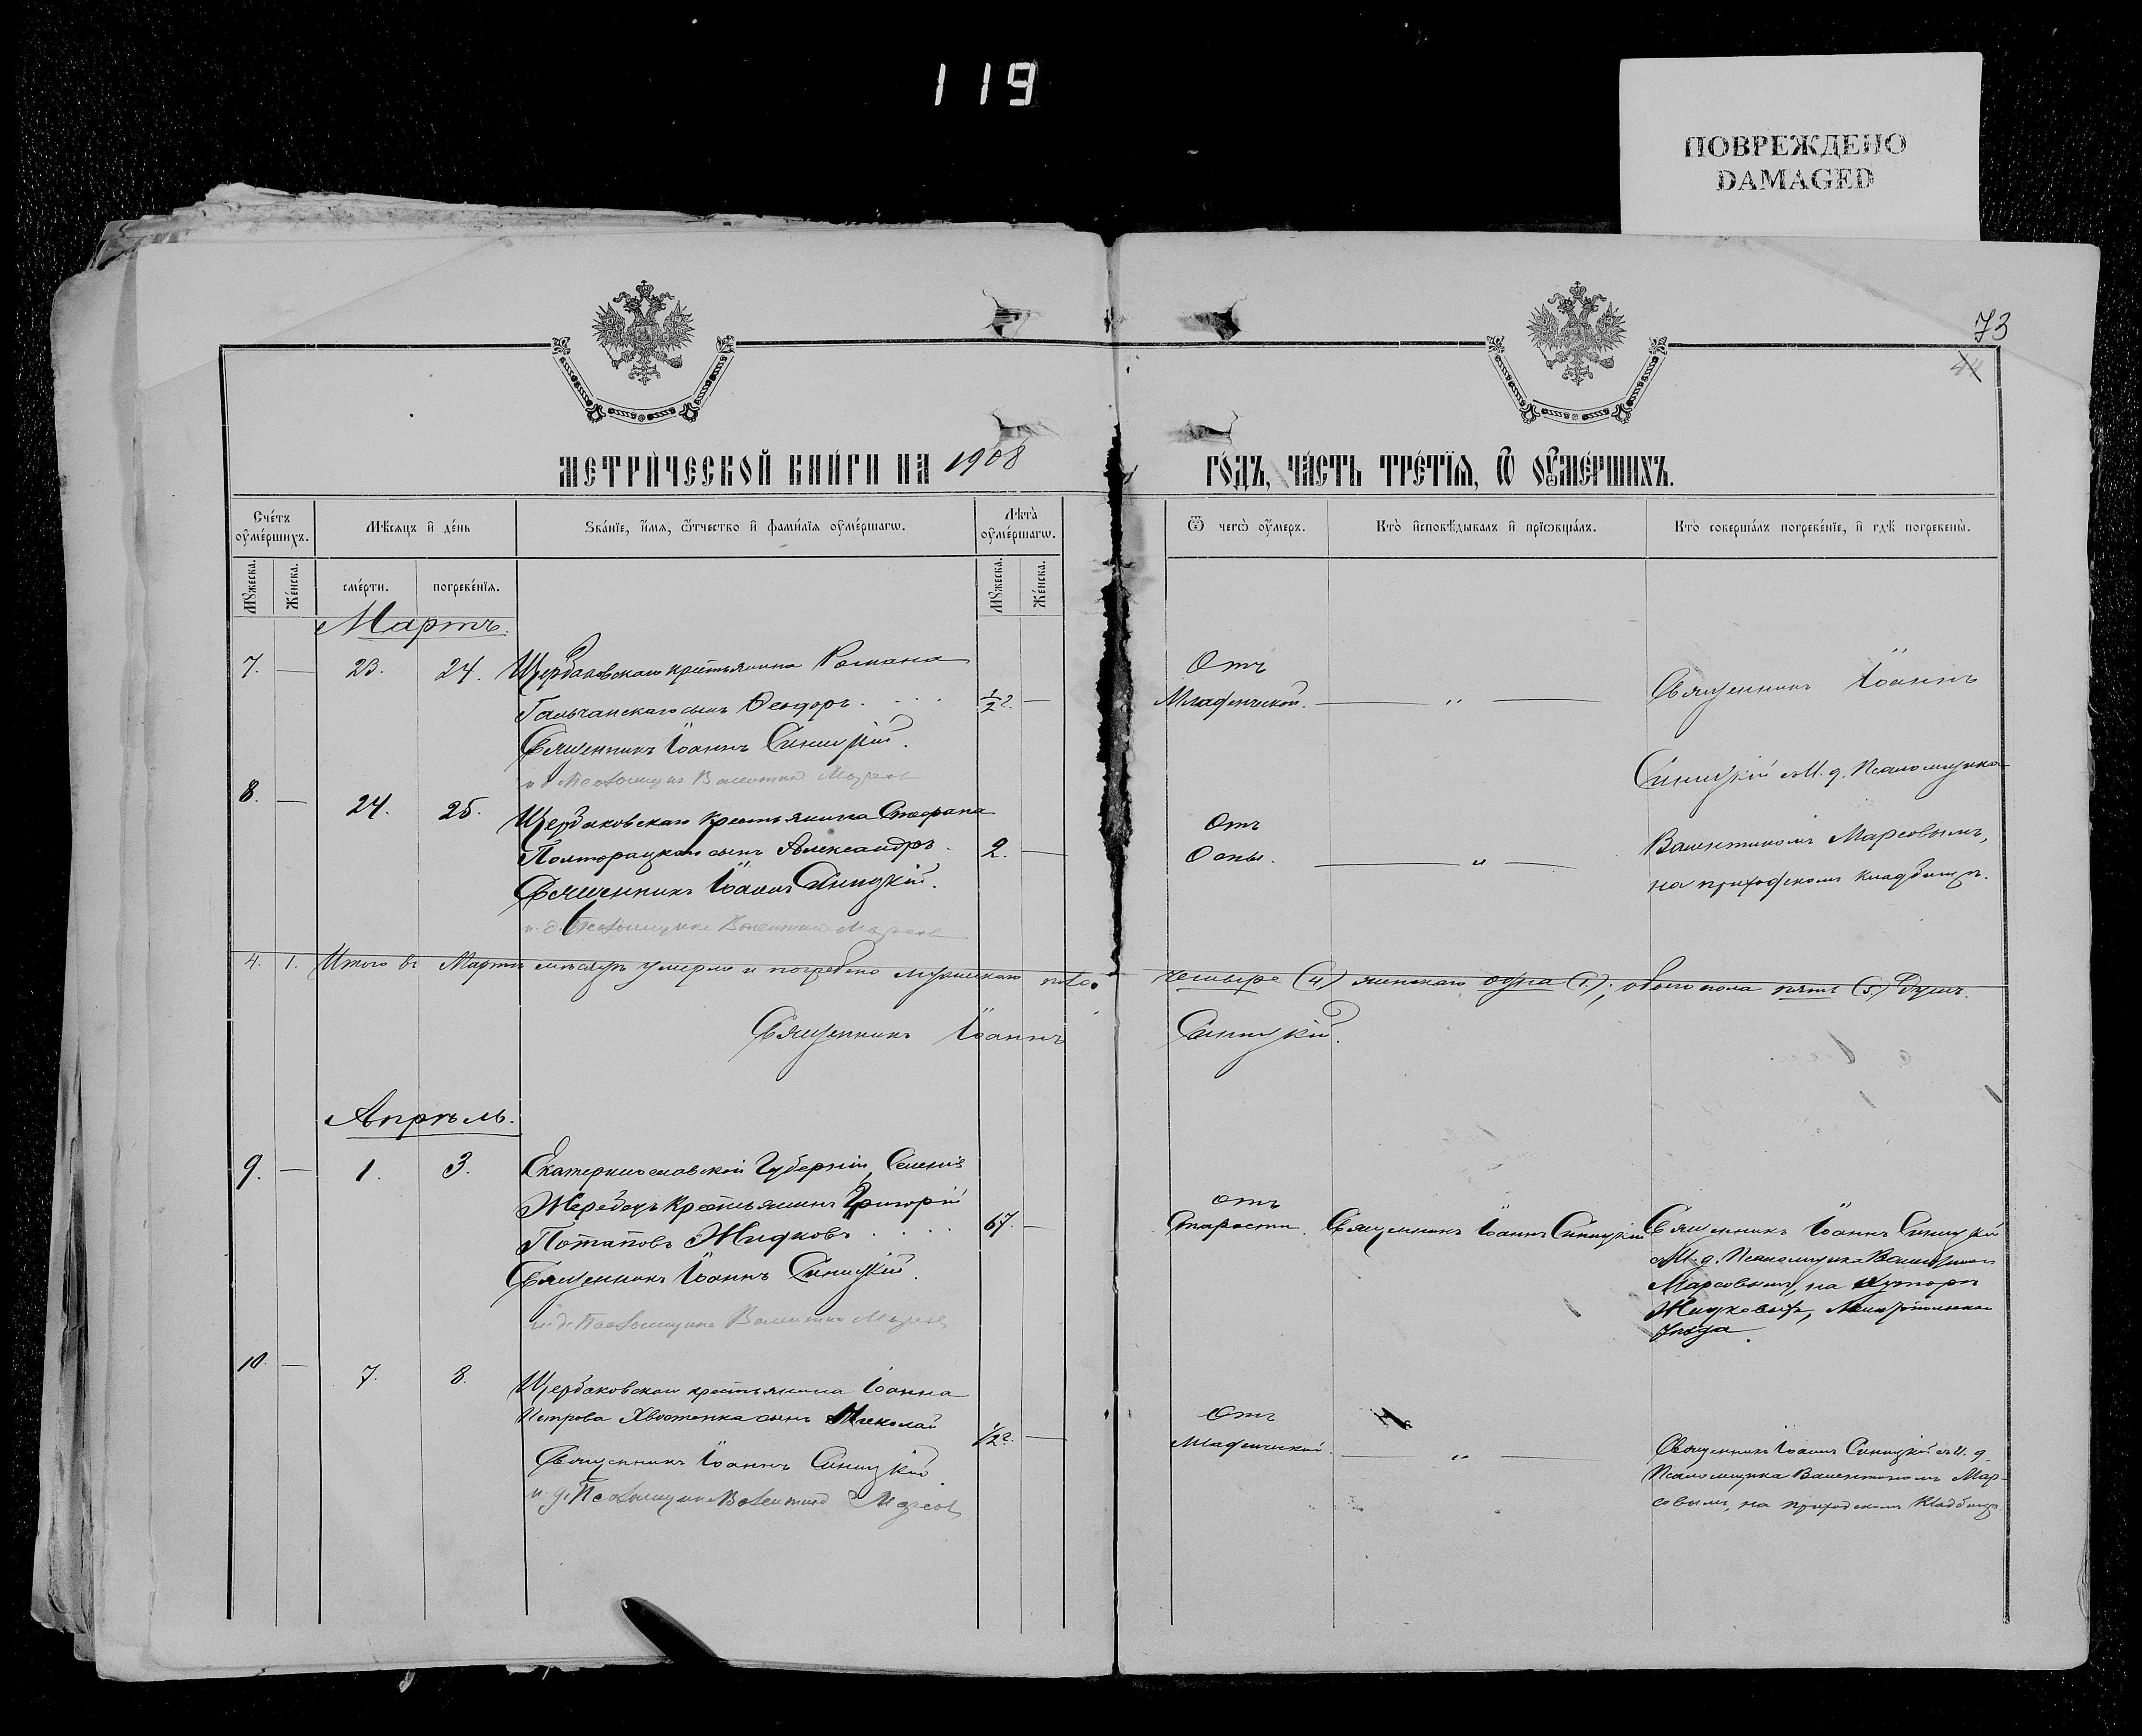 119
ПОВРЕЖДЕНО
DAMAGED
73
44
МЕТРИ́ЧЕСКОЙ КНИ́ГИ НА 1908 ГО́ДЪ, ЧА́СТЬ ТРЕ́ТЇѦ, Ѿ ОУ҆МЕ́РШИХЪ.
Сче́тъ оу҆ме́ршихъ.
Мѣ́сѧцъ и҆ де́нь
Зва́нїе, и҆́мѧ, ѻ҆́тчество и҆ фами́лїѧ оу҆ме́ршагѡ.
Лѣ́та оу҆ме́ршагѡ.
Ѿ чегѡ̀ оу҆́меръ.
Кто̀ и҆сповѣ́дывалъ и҆ прїѡбща́лъ.
Кто̀ соверша́лъ погребе́нїе, и҆ гдѣ̀ погребены̀.
Мꙋ́жеска.
Же́нска.
сме́рти.
погребе́нїѧ.
Мꙋ́жеска.
Же́нска.
Мартъ.
7. — 23. 24. Щербаковскаго крестьянина Романа
Гальчанскаго сынъ Ѳеодоръ. ½ г. —
Священникъ Іоаннъ Синицкій.
и. д. Псаломщика Валентинъ Марсов
Отъ
Младенческой. — „ —
Священникъ Іоаннъ
Синицкій съ И. д. Псаломщика
Валентиномъ Марсовымъ,
на приходскомъ кладбищѣ.
8. — 24. 25. Щербаковскаго крестьянина Стефана
Полторацкаго сынъ Александръ. 2. —
Священникъ Іоаннъ Синицкій.
и. д. Псаломщика Валентинъ Марсов
Отъ
Оспы. — „ —
4. 1. Итого въ Мартѣ мѣсяцѣ умерло и погребено мужескаго пола четыре (4) женскаго одна (1.); обоего пола пять (5.) душъ.
Священникъ Іоаннъ Синицкій.
Апрѣль.
9. — 1. 3. Екатеринославской Губерніи, Селенія
Жеребецъ крестьянинъ Григорій
Потаповъ Жидковъ. 67. —
Священникъ Іоаннъ Синицкій.
и. д. Псаломщика Валентинъ Марсов
отъ
Старости. Священникъ Іоаннъ Синицкій
Священникъ Іоаннъ Синицкій
съ И. д. Псаломщика Валентиномъ
Марсовымъ, на хуторѣ
Уѣзда.
10. — 7. 8. Щербаковскаго крестьянина Іоанна
Петрова Хвостенка сынъ Николай
½ г. —
Священникъ Іоаннъ Синицкій
и. д. Псаломщика Валентинъ Марсов
Отъ
Младенческой. — „ —
Священникъ Іоаннъ Синицкій съ И. д.
Псаломщика Валентиномъ Мар-
совымъ, на приходскомъ кладбищѣ.